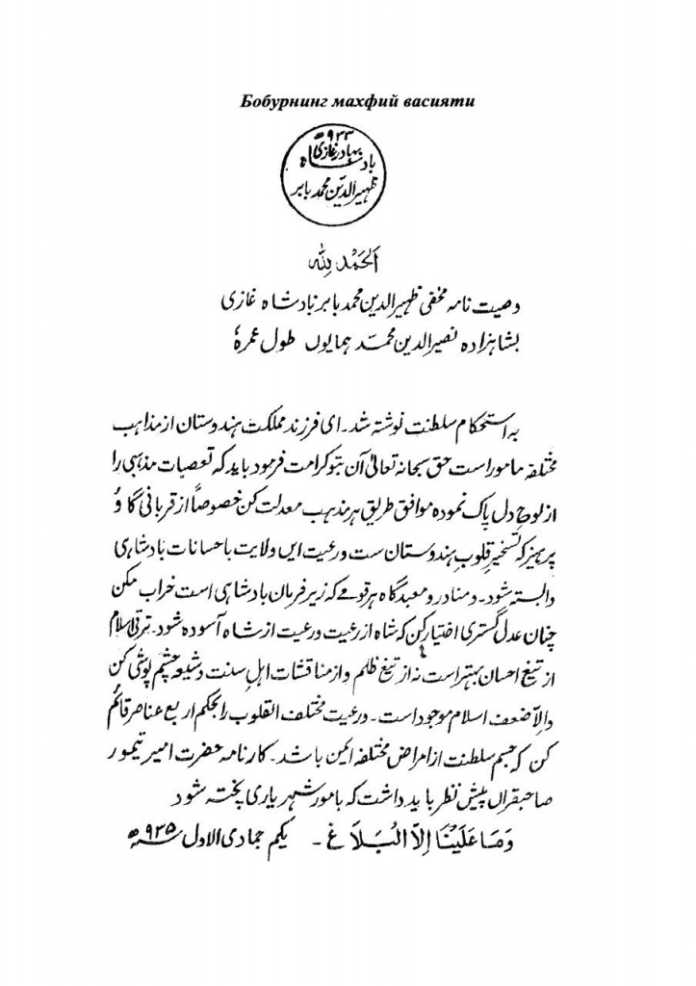 Бобурнинг махфий васияти
۹۳۳ ھ
بهادر غازی
بادشاه
ظهیرالدین محمد بابر
اَلحَمْدُ لِلّٰه
وصیت نامہ مخفی ظہیرالدین محمد بابر بادشاہ غازی
بشاہزادہ نصیرالدین محمّد ہمایوں طول عمرہٗ
بہ استحکام سلطنت نوشتہ شد۔ ای فرزند مملکت ہندوستان از مذاہب
مختلفہ مامور است حق سبحانہ تعالیٰ آن بتو کرامت فرمود باید کہ تعصبات مذہبی را
از لوحِ دل پاک نمودہ موافق طریق ہر مذہب معدلت کن خصوصاً از قربانی گاؤ
پرہیز کہ تسخیرِ قلوب ہندوستان ست و رعیت ایں ولایت با حسانات بادشاہی
وابستہ شود۔ و منادر و معبد گاہ ہر قومے کہ زیر فرمان بادشاہی است خراب مکن
چنان عدل گستری اختیار کن کہ شاہ از رعیت و رعیت از شاہ آسودہ شود۔ ترقی اسلام
از تیغ احسان بہتر است نہ از تیغ ظلم و از مناقشات اہلِ سنت و شیعہ چشم پوشی کن
والّا ضعف اسلام موجود است۔ و رعیت مختلف القلوب را بحکم اربع عناصر قائم
کن کہ جسم سلطنت از امراض مختلفہ ایمن باشد۔ کارنامہ حضرت امیر تیمور
صاحبقراں پیش نظر باید داشت کہ بامور شہریاری پختہ شود
وَمَا عَلَیْنَا اِلَّا الْبَلَاغ ۔ یکم جمادی الاول سنہ ۹۳۵ ھ